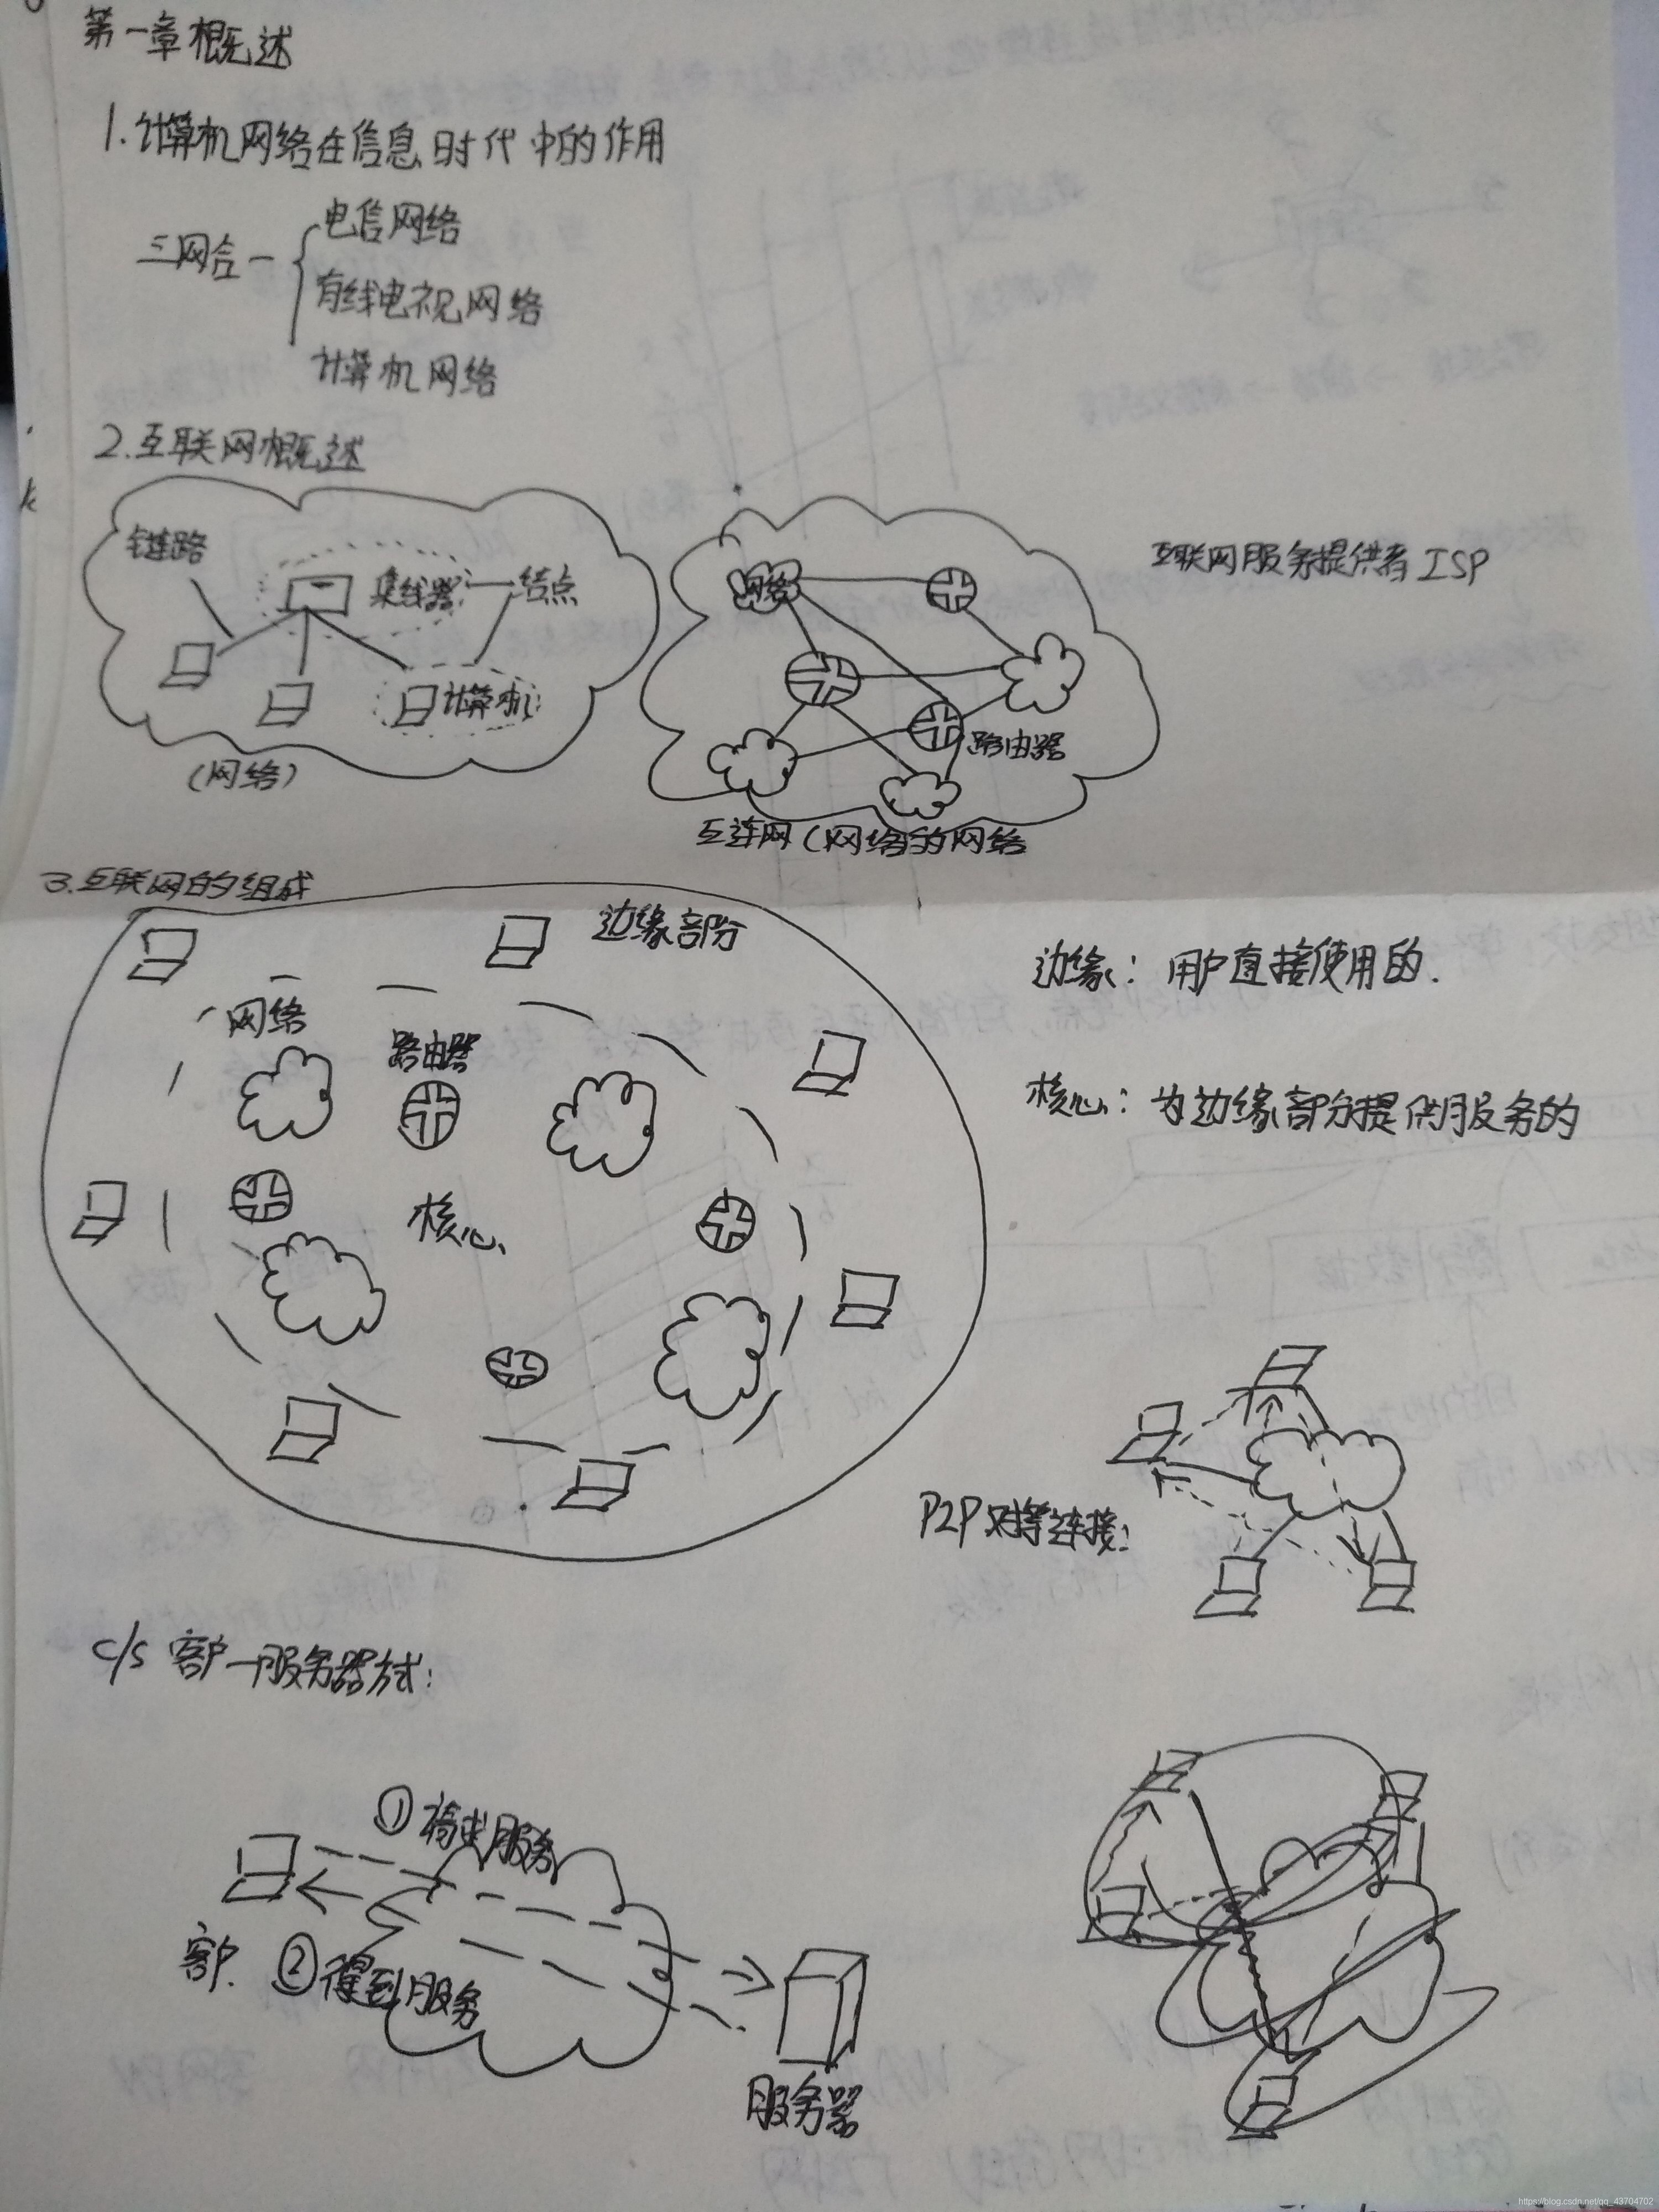 第一章概述
1.计算机网络在信息时代中的作用
三网合一
电信网络
有线电视网络
计算机网络
2.互联网概述
链路
集线器
结点
计算机
(网络)
网络
路由器
互连网(网络的网络
互联网服务提供者ISP
3.互联网的组成
边缘部分
网络
路由器
核心
边缘：用户直接使用的.
核心：为边缘部分提供服务的
P2P对等连接：
C/S 客户—服务器方式：
①
服务
客户.
②得到服务
服务器
https://blog.csdn.net/qq_43704702